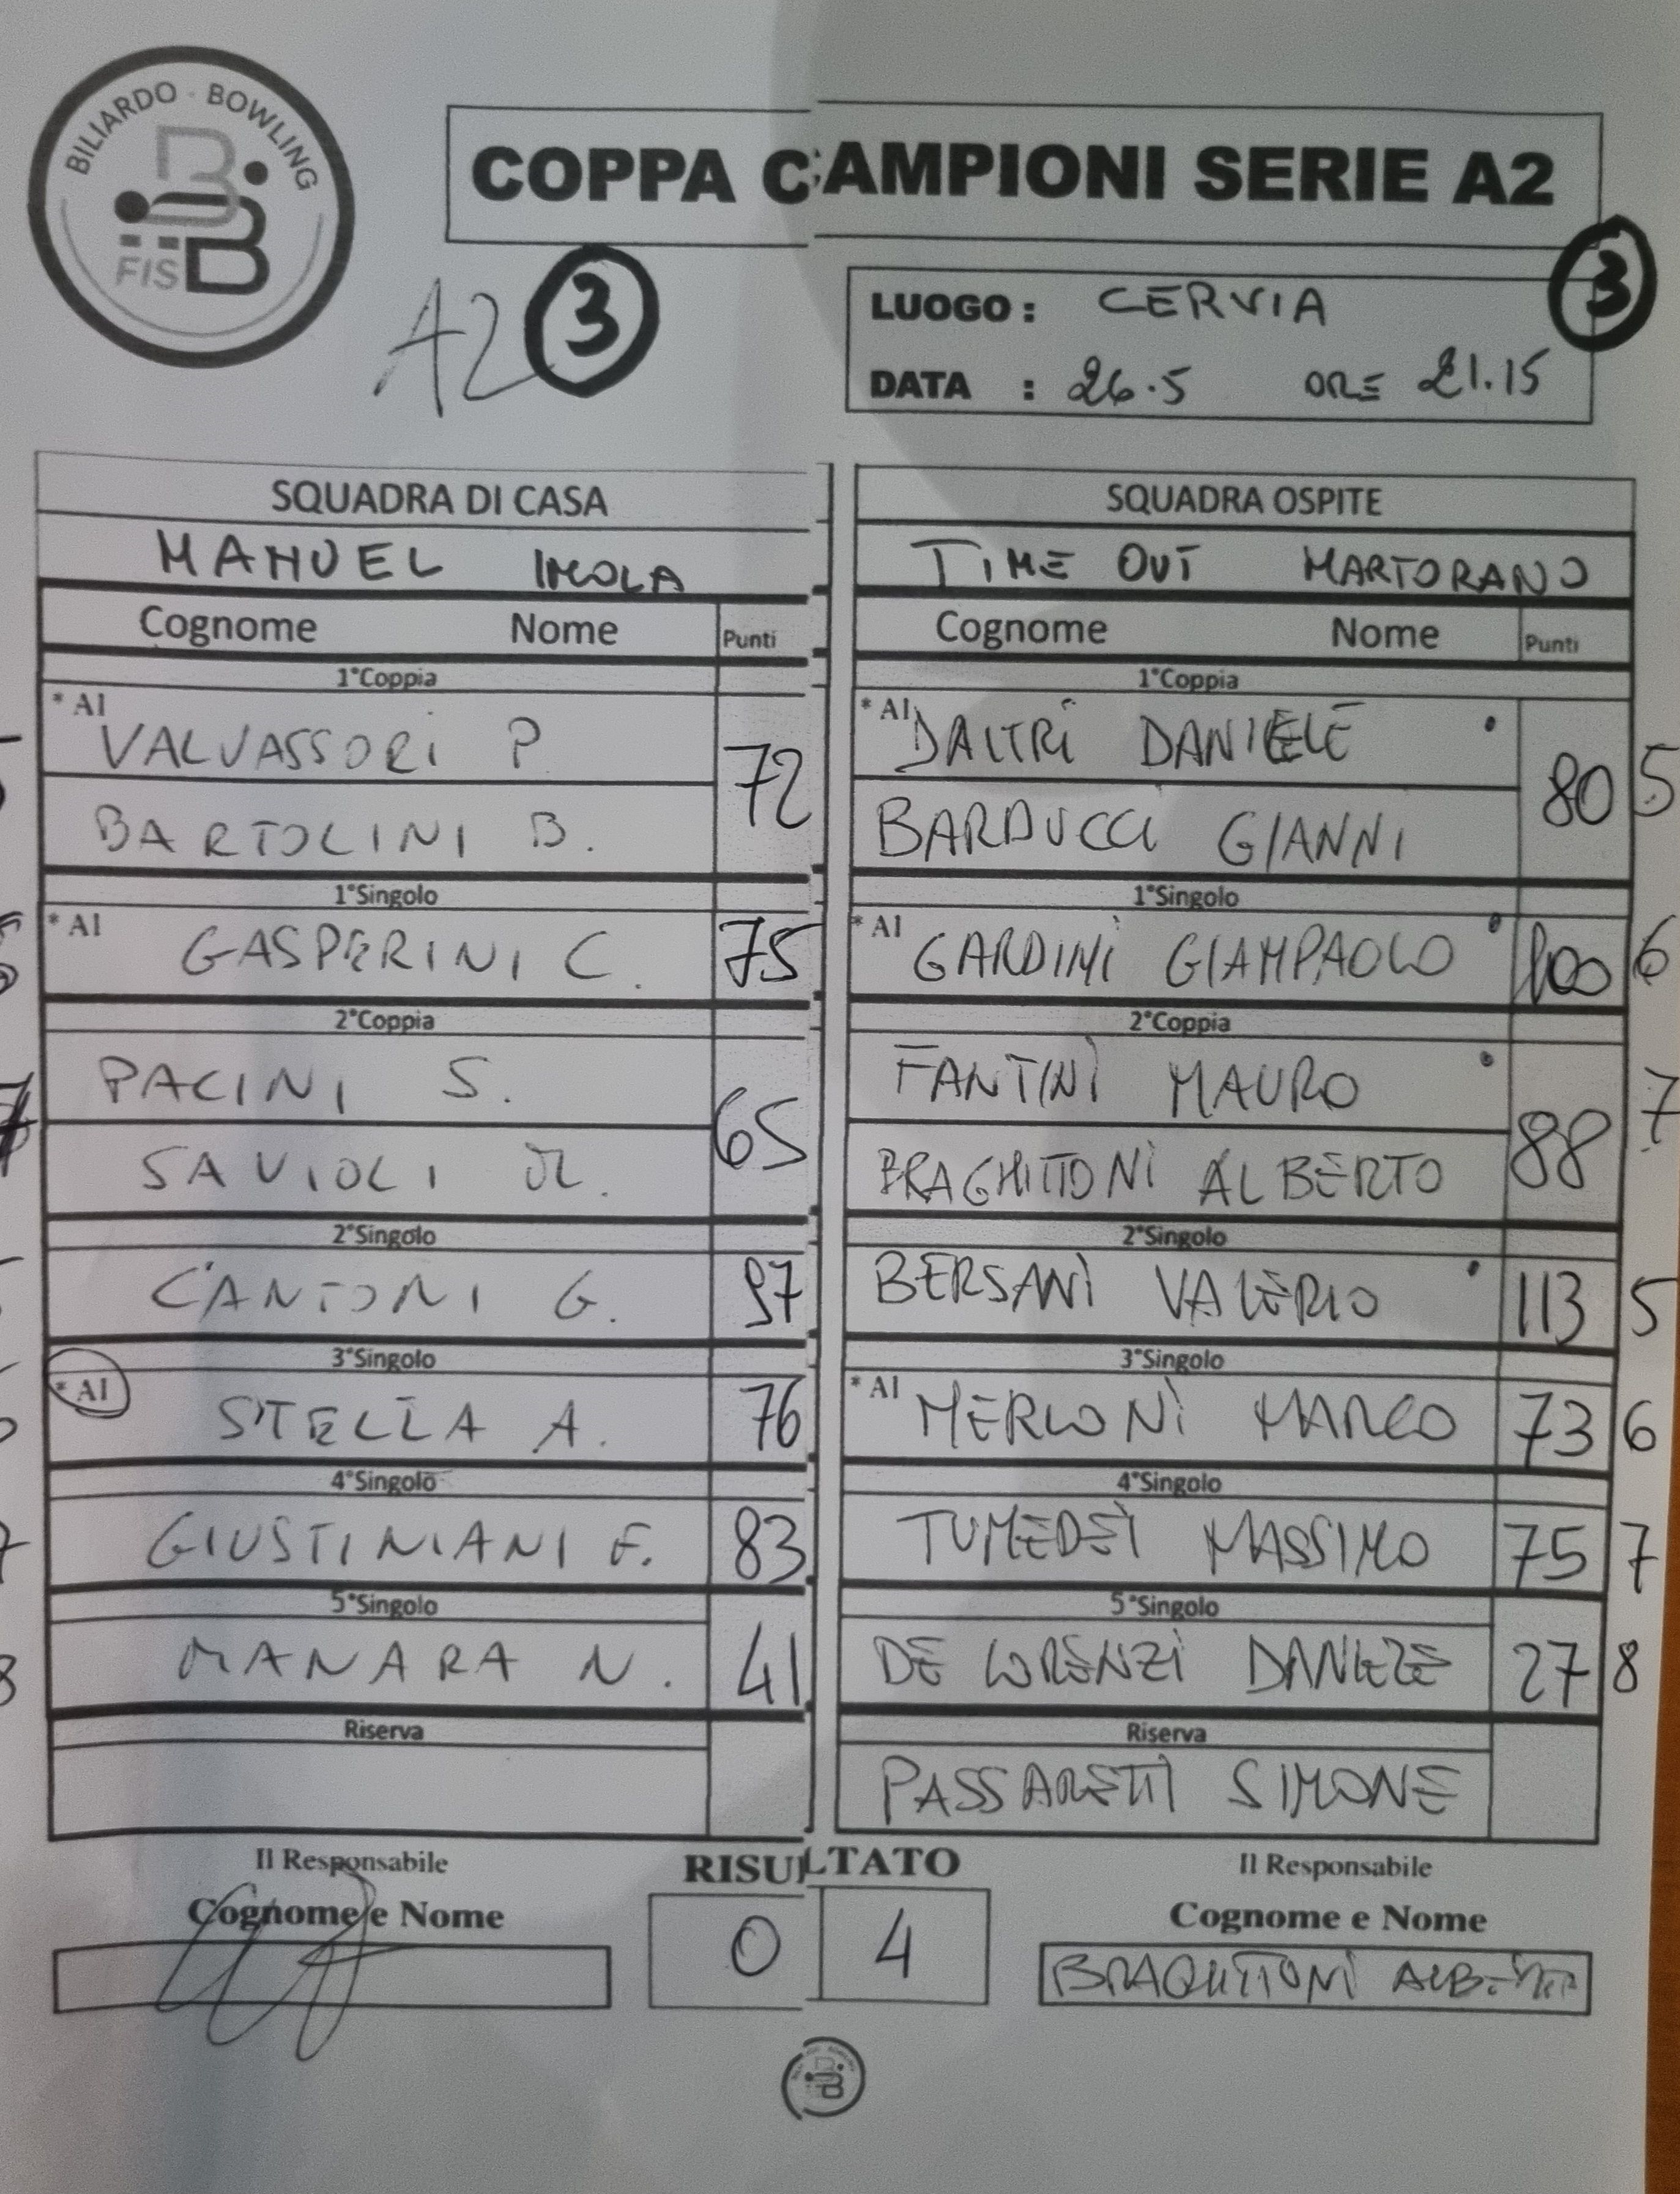 BILIARDO · BOWLING
FISBB
COPPA CAMPIONI SERIE A2
A2 3
3
LUOGO : CERVIA
DATA : 26.5 ORE 21.15
SQUADRA DI CASA
MANUEL IMOLA
Cognome Nome Punti
1°Coppia
* A1
VALVASSORI P.
72
BARTOLINI B.
1°Singolo
* A1 GASPERINI C. 75
2°Coppia
PACINI S.
65
SAVIOLI M.
2°Singolo
CANTONI G. 97
3°Singolo
* A1 STELLA A. 76
4°Singolo
GIUSTINIANI F. 83
5°Singolo
MANARA N. 41
Riserva
SQUADRA OSPITE
TIME OUT MARTORANO
Cognome Nome Punti
1°Coppia
* A1 DALTRI DANIELE
80 5
BARDUCCI GIANNI
1°Singolo
* A1 GARDINI GIAMPAOLO 100 6
2°Coppia
FANTINI MAURO
88 7
BRAGHITTONI ALBERTO
2°Singolo
BERSANI VALERIO 113 5
3°Singolo
* A1 MERLONI MARCO 73 6
4°Singolo
TUMEDEI MASSIMO 75 7
5°Singolo
DE LORENZI DANIELE 27 8
Riserva
PASSARETTI SIMONE
Il Responsabile
Cognome e Nome
RISULTATO
0 4
Il Responsabile
Cognome e Nome
BRAGHITTONI